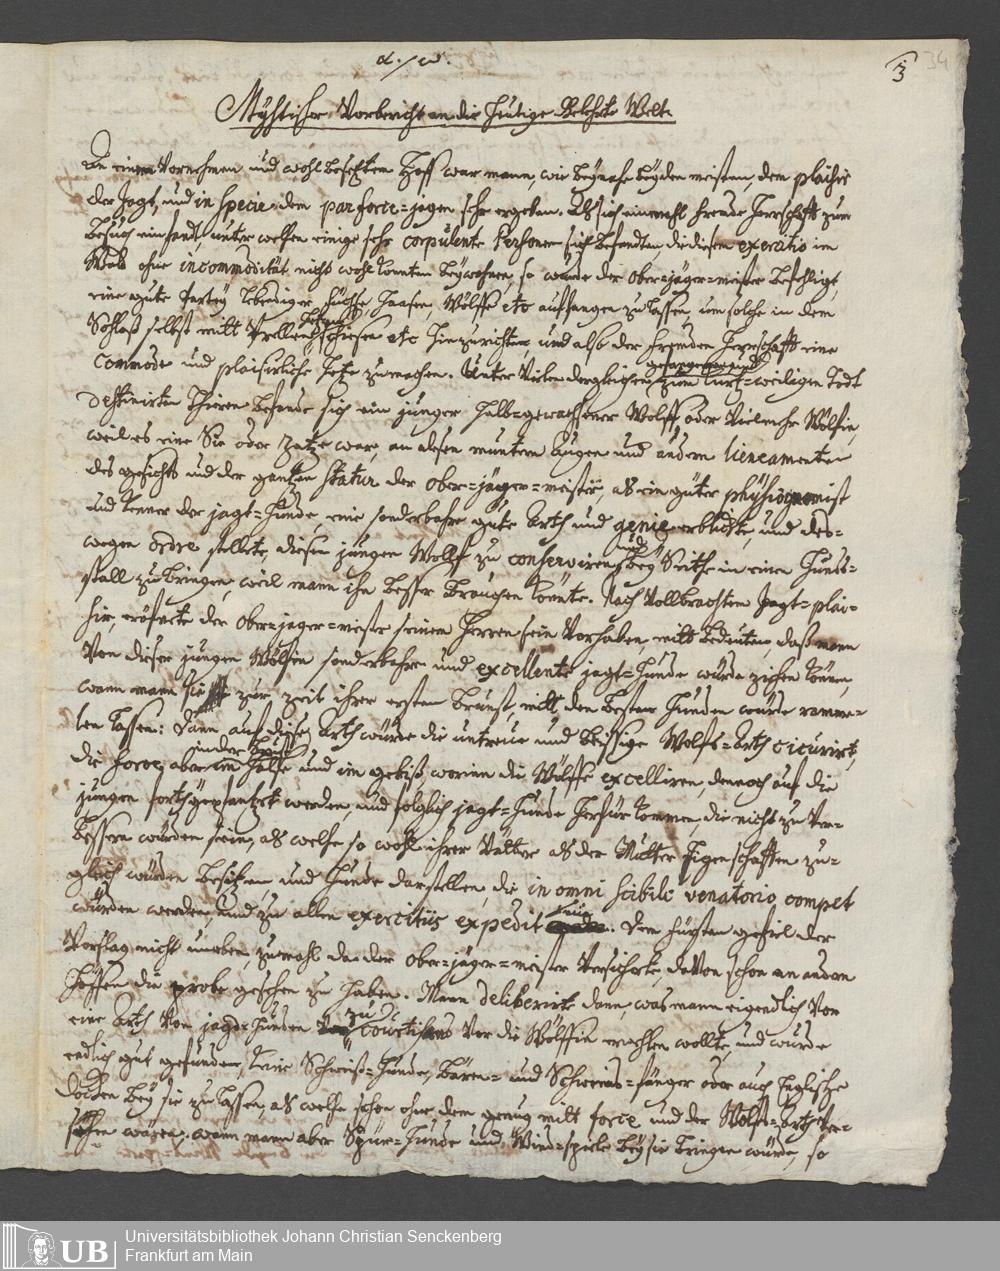 α./ω.
3
34
Mÿstischer Vorbericht an die heutige Gelehrte Welt.
An einem Vornehmen und wohl besetztem Hoff war mann, wie beÿnahe beÿ den meisten, dem plaisir
der Jagt, und in specie dem parforce=jagen sehr ergeben. Als sich einmahl fremde Herrschafft zum
besuch einfandt, unter welchen einige sehr corpulente Personen sich befandten, die diesem exercitio im
Wald ohne incommodität nicht wohl konnten beÿwohnen, so wurde der ober=jäger=meister befehligt,
eine gute partey lebendiger füchse, Haasen, Wölffe etc auffangen zu lassen, um solche in dem
Schloß selbst mitt Prellen, schiesen etc hinzurichten, und also der fremden Herrschafft eine
commode und plaisirliche Hetze zu machen. Unter Vielen dergleichen zum kurtz=weiligen Todt
destinirten Thieren befande sich ein junger halb=gewachsener Wolff, oder Vielmehr Wölfin,
weil es eine Sie oder Zatze war, an dessen muntern Augen und andern lineamenten
des gesichts und der gantzen statur, der ober=jäger=meister als ein guter physiognomist
und kenner der jagt=Hunde, eine sonderbahre gute Arth und genie erblickte, und des=
wegen ordre stellete, diesen jungen Wolff zu conserviren, und beÿ Seithe in einen Hunds=
stall zu bringen, weil mann ihn besser brauchen könnte. Nach Vollbrachtem Jagt=plai=
sir, eröfnete der ober=jäger=meister seinem Herren sein Vorhaben, mitt bedeuten, daß mann
Von dieser jungen Wölfin sonderbahre und excellente jagt=Hunde würde ziehen können,
wann mann sie zur zeit ihrer ersten brunst, mitt den besten Hunden würde ramme=
len lassen: Dann auf diese Arth würde die untreue und beissige Wolfs=Arth cicurirt,
die force aber in der Brust Halse und im gebiß, worinn die Wölffe excelliren, dennoch auf die
jungen forthgepflantzt werden, und folglich jagt=Hunde herfür kommen, die nicht zu Ver=
bessern würden sein, als welche so wohl ihrer Vätter als der Mütter Eigenschafften zu=
gleich würden besitzen und Hunde darstellen, die in omni scibili venatorio complet
würden werden, und zu allen exercitiis expedit sein. Dem fürsten gefiel der
Vorschlag nicht uneben, zumahl da der ober=jäger=meister Versicherte, daVon schon an andern
Höffen die probe gesehen zu haben. Mann deliberirte dann, was mann eigendlich Von
eine Arth Von jagd=Hunden zu courtisans Vor die Wölffin erwehlen wollte, und wurde
endlich gut gefunden, keine Schweiß=Hunde, Bären= und Schweins=fänger oder auch Englische
Docken beÿ sie zu lassen, als welche schon ohne dem genug mitt force und der Wolfs=Arth Ver=
sehen wären: wann mann aber Spür=Hunde und Wind=spiele beÿ sie bringen würde, so
UB Universitätsbibliothek Johann Christian Senckenberg
Frankfurt am Main